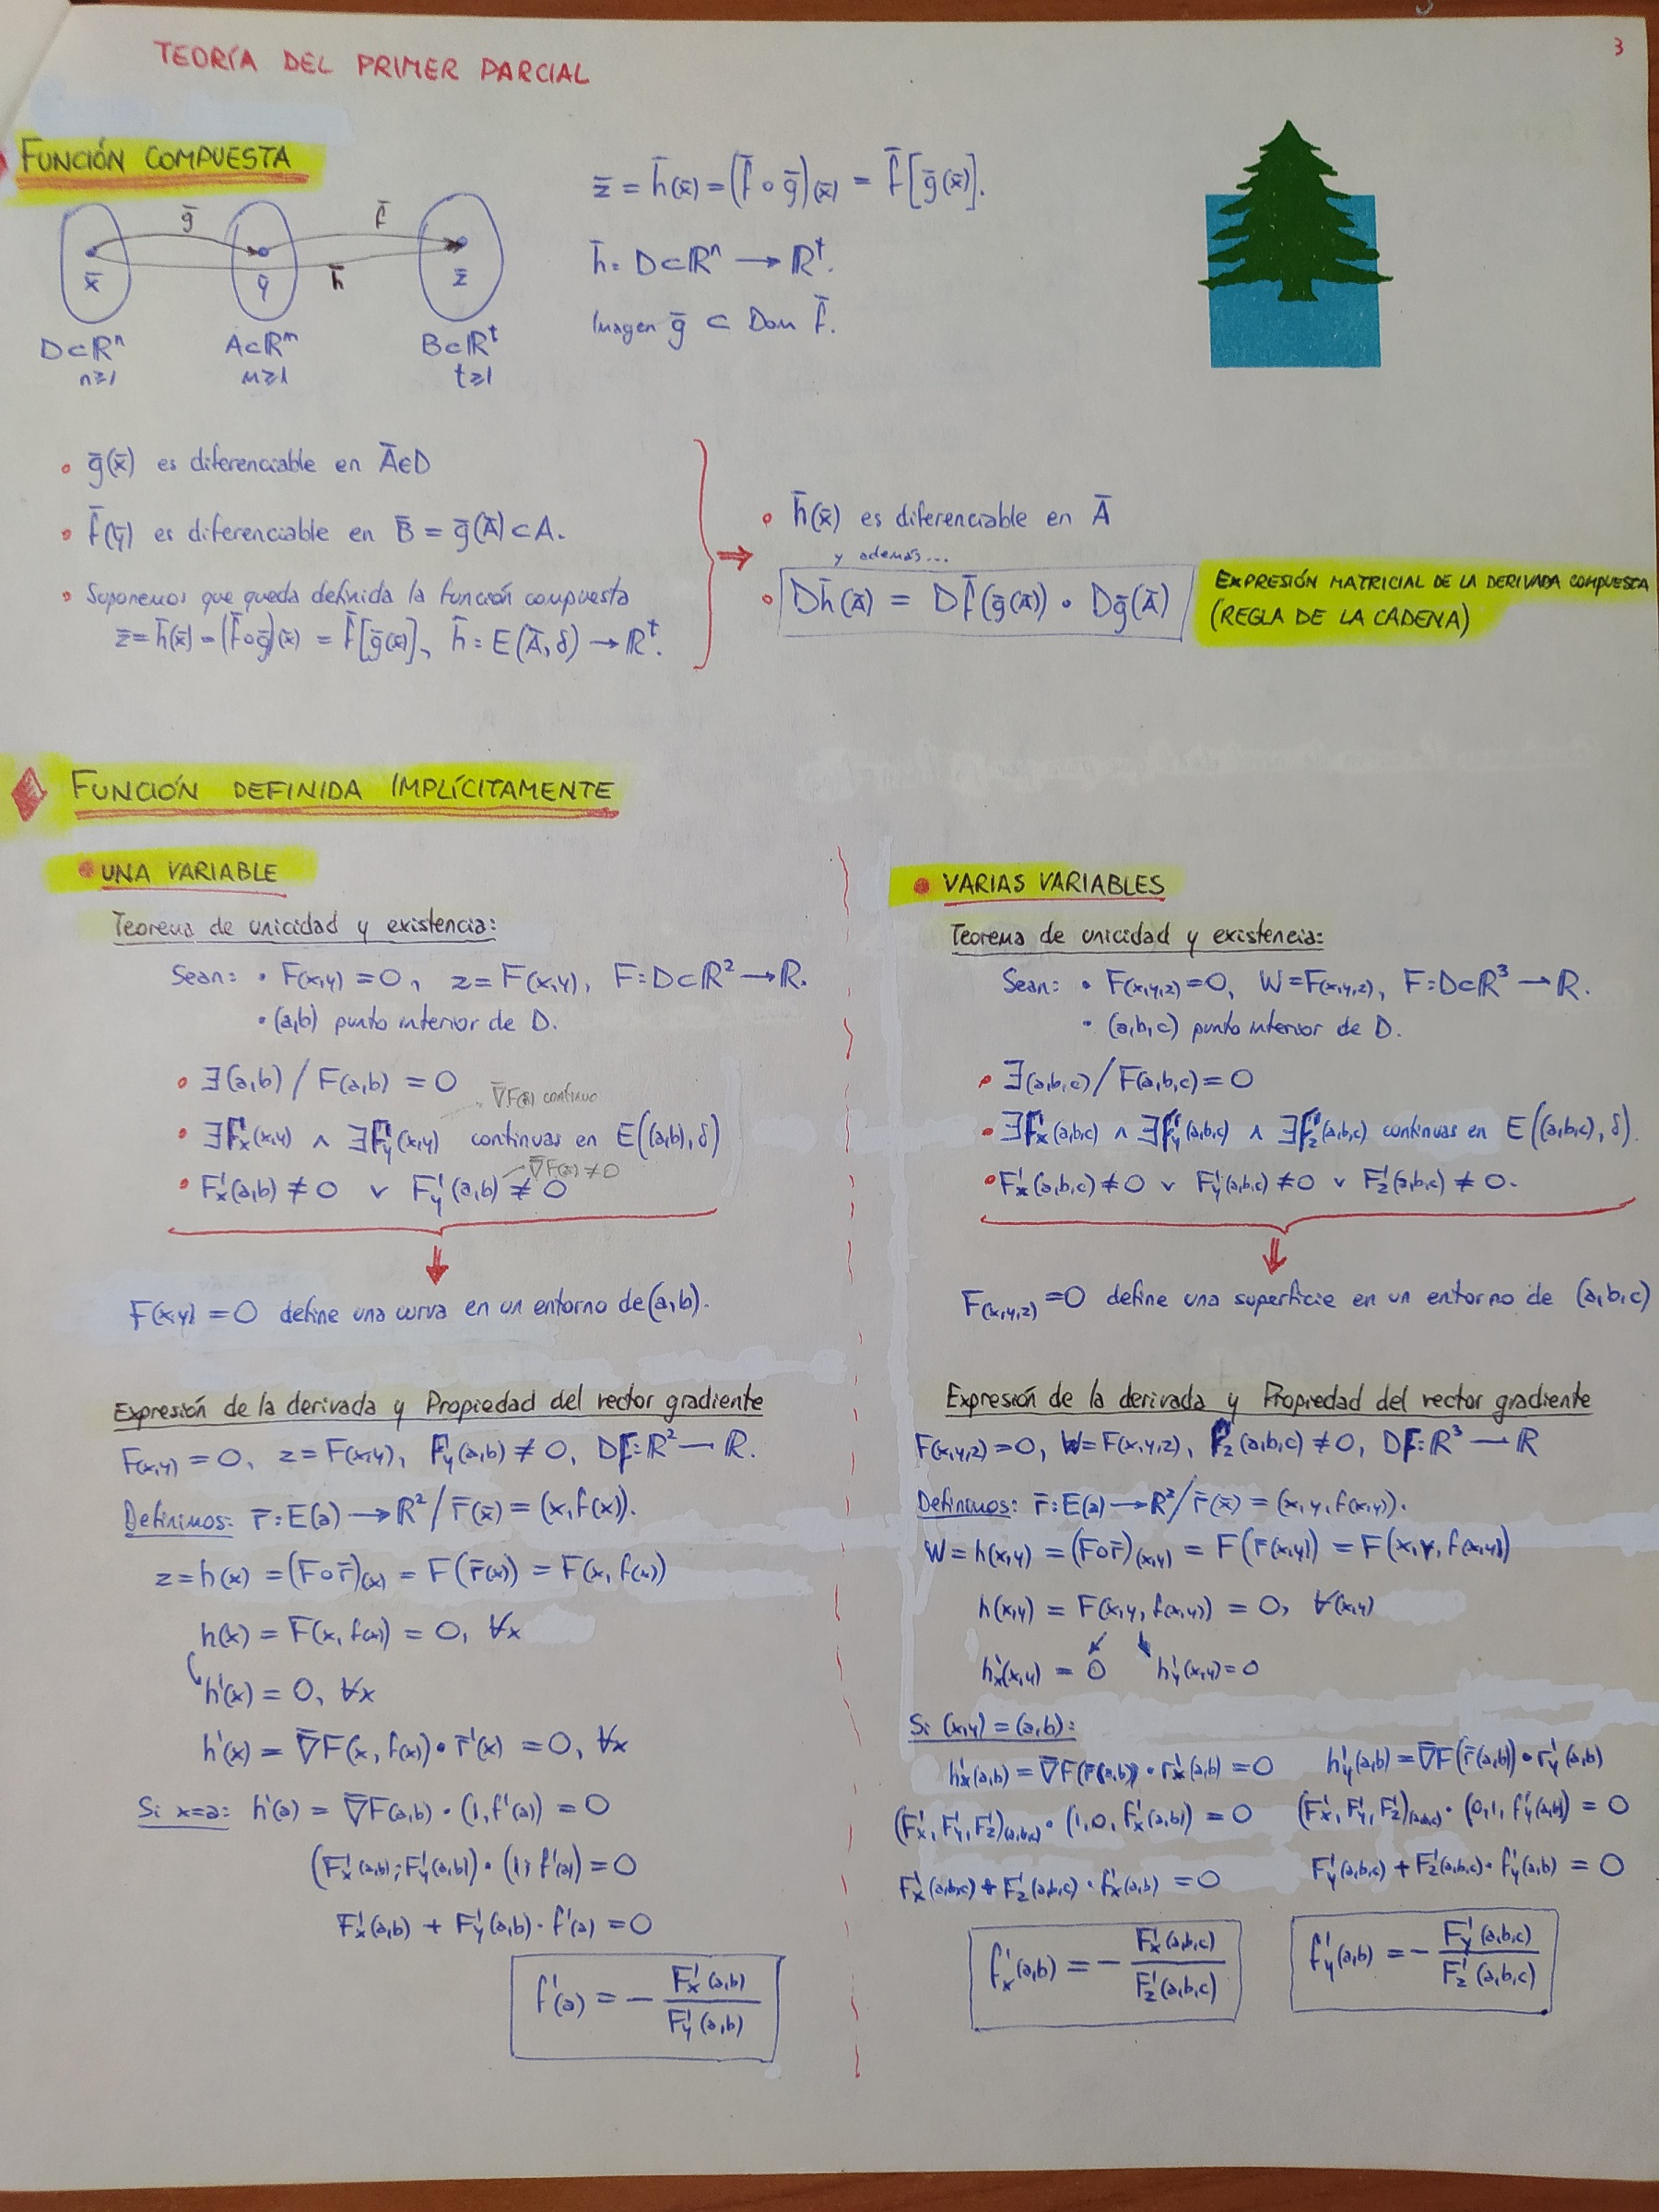 3
TEORÍA DEL PRIMER PARCIAL
FUNCIÓN COMPUESTA
ḡ f̄
x̄ ȳ h̄ z̄
D⊂ℝⁿ A⊂ℝᵐ B⊂ℝᵗ
n≥1 m≥1 t≥1
z̄ = h̄(x̄) = (f̄ ∘ ḡ)(x̄) = f̄[ḡ(x̄)].
h̄: D⊂ℝⁿ → ℝᵗ.
Imagen ḡ ⊂ Dom f̄.
• ḡ(x̄) es diferenciable en Ā∈D
• f̄(ȳ) es diferenciable en B̄ = ḡ(Ā) ⊂ A.
• Suponemos que queda definida la función compuesta
z̄ = h̄(x̄) = (f̄∘ḡ)(x̄) = f̄[ḡ(x̄)], h̄: E(Ā, δ) → ℝᵗ.
⇒
• h̄(x̄) es diferenciable en Ā
y además...
• Dh̄(Ā) = Df̄(ḡ(Ā)) • Dḡ(Ā)
EXPRESIÓN MATRICIAL DE LA DERIVADA COMPUESTA
(REGLA DE LA CADENA)
FUNCIÓN DEFINIDA IMPLÍCITAMENTE
• UNA VARIABLE
Teorema de unicidad y existencia:
Sean: • F(x,y) = 0, z = F(x,y), F: D⊂ℝ² → ℝ.
• (a,b) punto interior de D.
• ∃(a,b) / F(a,b) = 0
∇̄F(x̄) continuo
• ∃F'x(x,y) ∧ ∃F'y(x,y) continuas en E((a,b), δ)
∇̄F(x̄) ≠ 0
• F'x(a,b) ≠ 0 ∨ F'y(a,b) ≠ 0
⇓
F(x,y) = 0 define una curva en un entorno de (a,b).
Expresión de la derivada y Propiedad del vector gradiente
F(x,y) = 0, z = F(x,y), F'y(a,b) ≠ 0, DF: ℝ² → ℝ.
Definimos: r̄: E(a) → ℝ² / r̄(x̄) = (x, f(x)).
z = h(x) = (F∘r̄)(x) = F(r̄(x)) = F(x, f(x))
h(x) = F(x, f(x)) = 0, ∀x
h'(x) = 0, ∀x
h'(x) = ∇̄F(x, f(x)) • r̄'(x) = 0, ∀x
Si x=a: h'(a) = ∇̄F(a,b) • (1, f'(a)) = 0
(F'x(a,b); F'y(a,b)) • (1; f'(a)) = 0
F'x(a,b) + F'y(a,b) • f'(a) = 0
f'(a) = - F'x(a,b) / F'y(a,b)
• VARIAS VARIABLES
Teorema de unicidad y existencia:
Sean: • F(x,y,z) = 0, W = F(x,y,z), F: D⊂ℝ³ → ℝ.
• (a,b,c) punto interior de D.
• ∃(a,b,c) / F(a,b,c) = 0
• ∃F'x(a,b,c) ∧ ∃F'y(a,b,c) ∧ ∃F'z(a,b,c) continuas en E((a,b,c), δ).
• F'x(a,b,c) ≠ 0 ∨ F'y(a,b,c) ≠ 0 ∨ F'z(a,b,c) ≠ 0.
⇓
F(x,y,z) = 0 define una superficie en un entorno de (a,b,c)
Expresión de la derivada y Propiedad del vector gradiente
F(x,y,z) = 0, W = F(x,y,z), F'z(a,b,c) ≠ 0, DF: ℝ³ → ℝ
Definimos: r̄: E(a) → ℝ² / r̄(x̄) = (x, y, f(x,y)).
W = h(x,y) = (F∘r̄)(x,y) = F(r̄(x,y)) = F(x, y, f(x,y))
h(x,y) = F(x,y, f(x,y)) = 0, ∀(x,y)
h'x(x,y) = 0 h'y(x,y) = 0
Si (x,y) = (a,b):
h'x(a,b) = ∇̄F(r̄(a,b)) • r̄'x(a,b) = 0 h'y(a,b) = ∇̄F(r̄(a,b)) • r̄'y(a,b)
(F'x, F'y, F'z)(a,b,c) • (1, 0, f'x(a,b)) = 0 (F'x, F'y, F'z)(a,b,c) • (0, 1, f'y(a,b)) = 0
F'x(a,b,c) + F'z(a,b,c) • f'x(a,b) = 0 F'y(a,b,c) + F'z(a,b,c) • f'y(a,b) = 0
f'x(a,b) = - F'x(a,b,c) / F'z(a,b,c) f'y(a,b) = - F'y(a,b,c) / F'z(a,b,c)